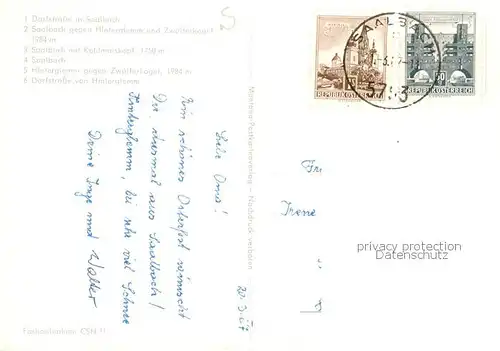 1 Dorfstraße in Saalbach
2 Saalbach gegen Hinterglemm und Zwölferkogel
1984 m
3 Saalbach mit Kohlmaiskopf, 1798 m
4 Saalbach
5 Hinterglemm gegen Zwölferkogel, 1984 m
6 Dorfstraße von Hinterglemm
20.3.67
Liebe Oma!
Ein schönes Osterfest wünscht
Dir diesmal aus Saalbach/
Hinterglemm, bei sehr viel Schnee
Deine Inge und Walter
SAALBACH
5753
REPUBLIK ÖSTERREICH
50
REPUBLIK ÖSTERREICH
Fr
Irene
privacy protection
watermark
DELCAMPE.NET